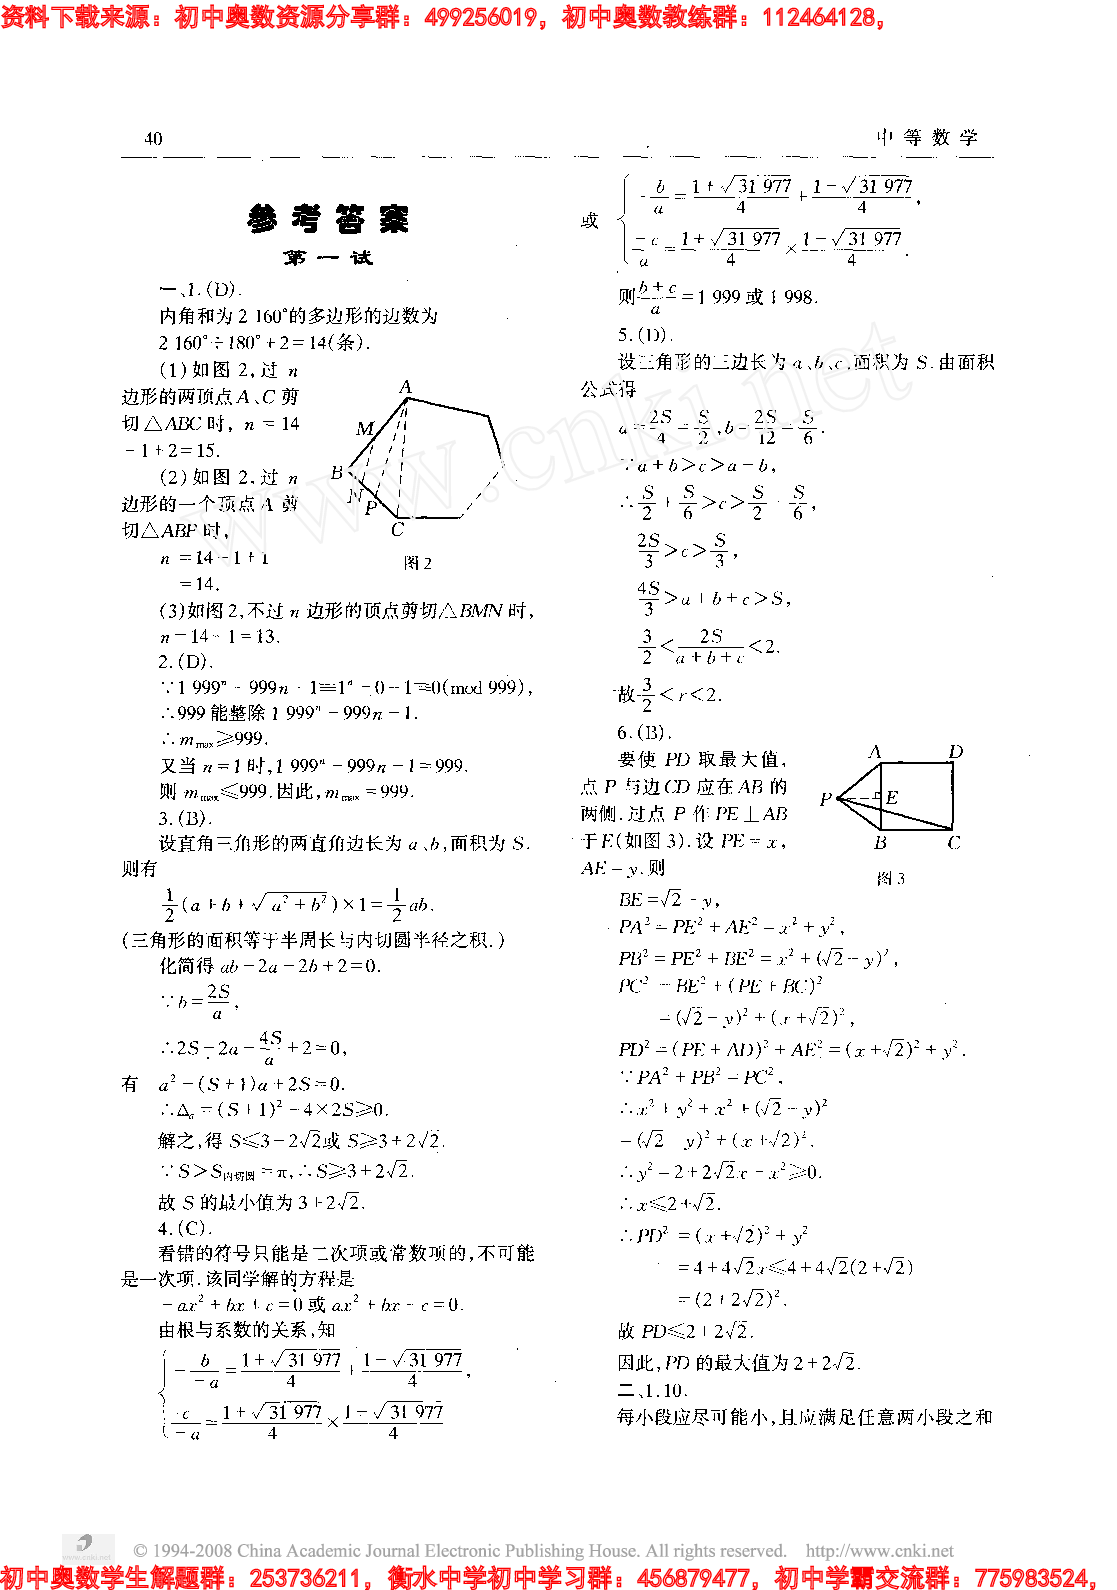 资料下载来源：初中奥数资源分享群：499256019，初中奥数教练群：112464128，
40
中等数学
参考答案
第一试
一、1.(D).
内角和为2 160°的多边形的边数为
2 160°÷180°+2=14(条).
(1)如图2,过 n
边形的两顶点A、C剪
切△ABC时, n = 14
-1+2=15.
(2)如图2,过 n
边形的一个顶点A剪
切△ABP时,
n =14-1+1
=14.
A
M
B
N
P
C
图2
(3)如图2,不过 n 边形的顶点剪切△BMN时,
n=14-1=13.
2.(D).
∵1 999ⁿ-999n-1≡1ⁿ-0-1≡0(mod 999),
∴999能整除1 999ⁿ-999n-1.
∴m_max≥999.
又当 n=1时,1 999ⁿ-999n-1=999.
则 m_max≤999.因此,m_max=999.
3.(B).
设直角三角形的两直角边长为 a、b,面积为 S.
则有
1/2(a+b+√(a²+b²))×1=1/2ab.
(三角形的面积等于半周长与内切圆半径之积.)
化简得 ab-2a-2b+2=0.
∵b=2S/a,
∴2S-2a-4S/a+2=0,
有 a²-(S+1)a+2S=0.
∴Δₐ=(S+1)²-4×2S≥0.
解之,得 S≤3-2√2或 S≥3+2√2.
∵S>S内切圆=π,∴S≥3+2√2.
故 S 的最小值为3+2√2.
4.(C).
看错的符号只能是二次项或常数项的,不可能
是一次项.该同学解的方程是
-ax²+bx+c=0或 ax²+bx-c=0.
由根与系数的关系,知
{ -b/-a=(1+√31 977)/4+(1-√31 977)/4,
c/-a=(1+√31 977)/4×(1-√31 977)/4
或 { -b/a=(1+√31 977)/4+(1-√31 977)/4,
-c/a=(1+√31 977)/4×(1-√31 977)/4.
则(b+c)/a=1 999或1 998.
5.(D).
设三角形的三边长为 a、b、c,面积为 S.由面积
公式得
a=2S/4=S/2,b=2S/12=S/6.
∵a+b>c>a-b,
∴S/2+S/6>c>S/2-S/6,
2S/3>c>S/3,
4S/3>a+b+c>S,
3/2<2S/(a+b+c)<2.
故3/2<r<2.
6.(B).
要使 PD 取最大值,
点 P 与边CD应在AB的
两侧.过点 P 作PE⊥AB
于E(如图3).设 PE=x,
AE=y.则
A
D
P
E
B
C
图3
BE=√2-y,
PA²=PE²+AE²=x²+y²,
PB²=PE²+BE²=x²+(√2-y)²,
PC²=BE²+(PE+BC)²
=(√2-y)²+(x+√2)²,
PD²=(PE+AD)²+AE²=(x+√2)²+y².
∵PA²+PB²=PC²,
∴x²+y²+x²+(√2-y)²
=(√2-y)²+(x+√2)².
∴y²=2+2√2x-x²≥0.
∴x≤2+√2.
∴PD²=(x+√2)²+y²
=4+4√2x≤4+4√2(2+√2)
=(2+2√2)².
故 PD≤2+2√2.
因此,PD 的最大值为2+2√2.
二、1.10.
每小段应尽可能小,且应满足任意两小段之和
www.cnki.net
© 1994-2008 China Academic Journal Electronic Publishing House. All rights reserved. http://www.cnki.net
初中奥数学生解题群：253736211，衡水中学初中学习群：456879477，初中学霸交流群：775983524，